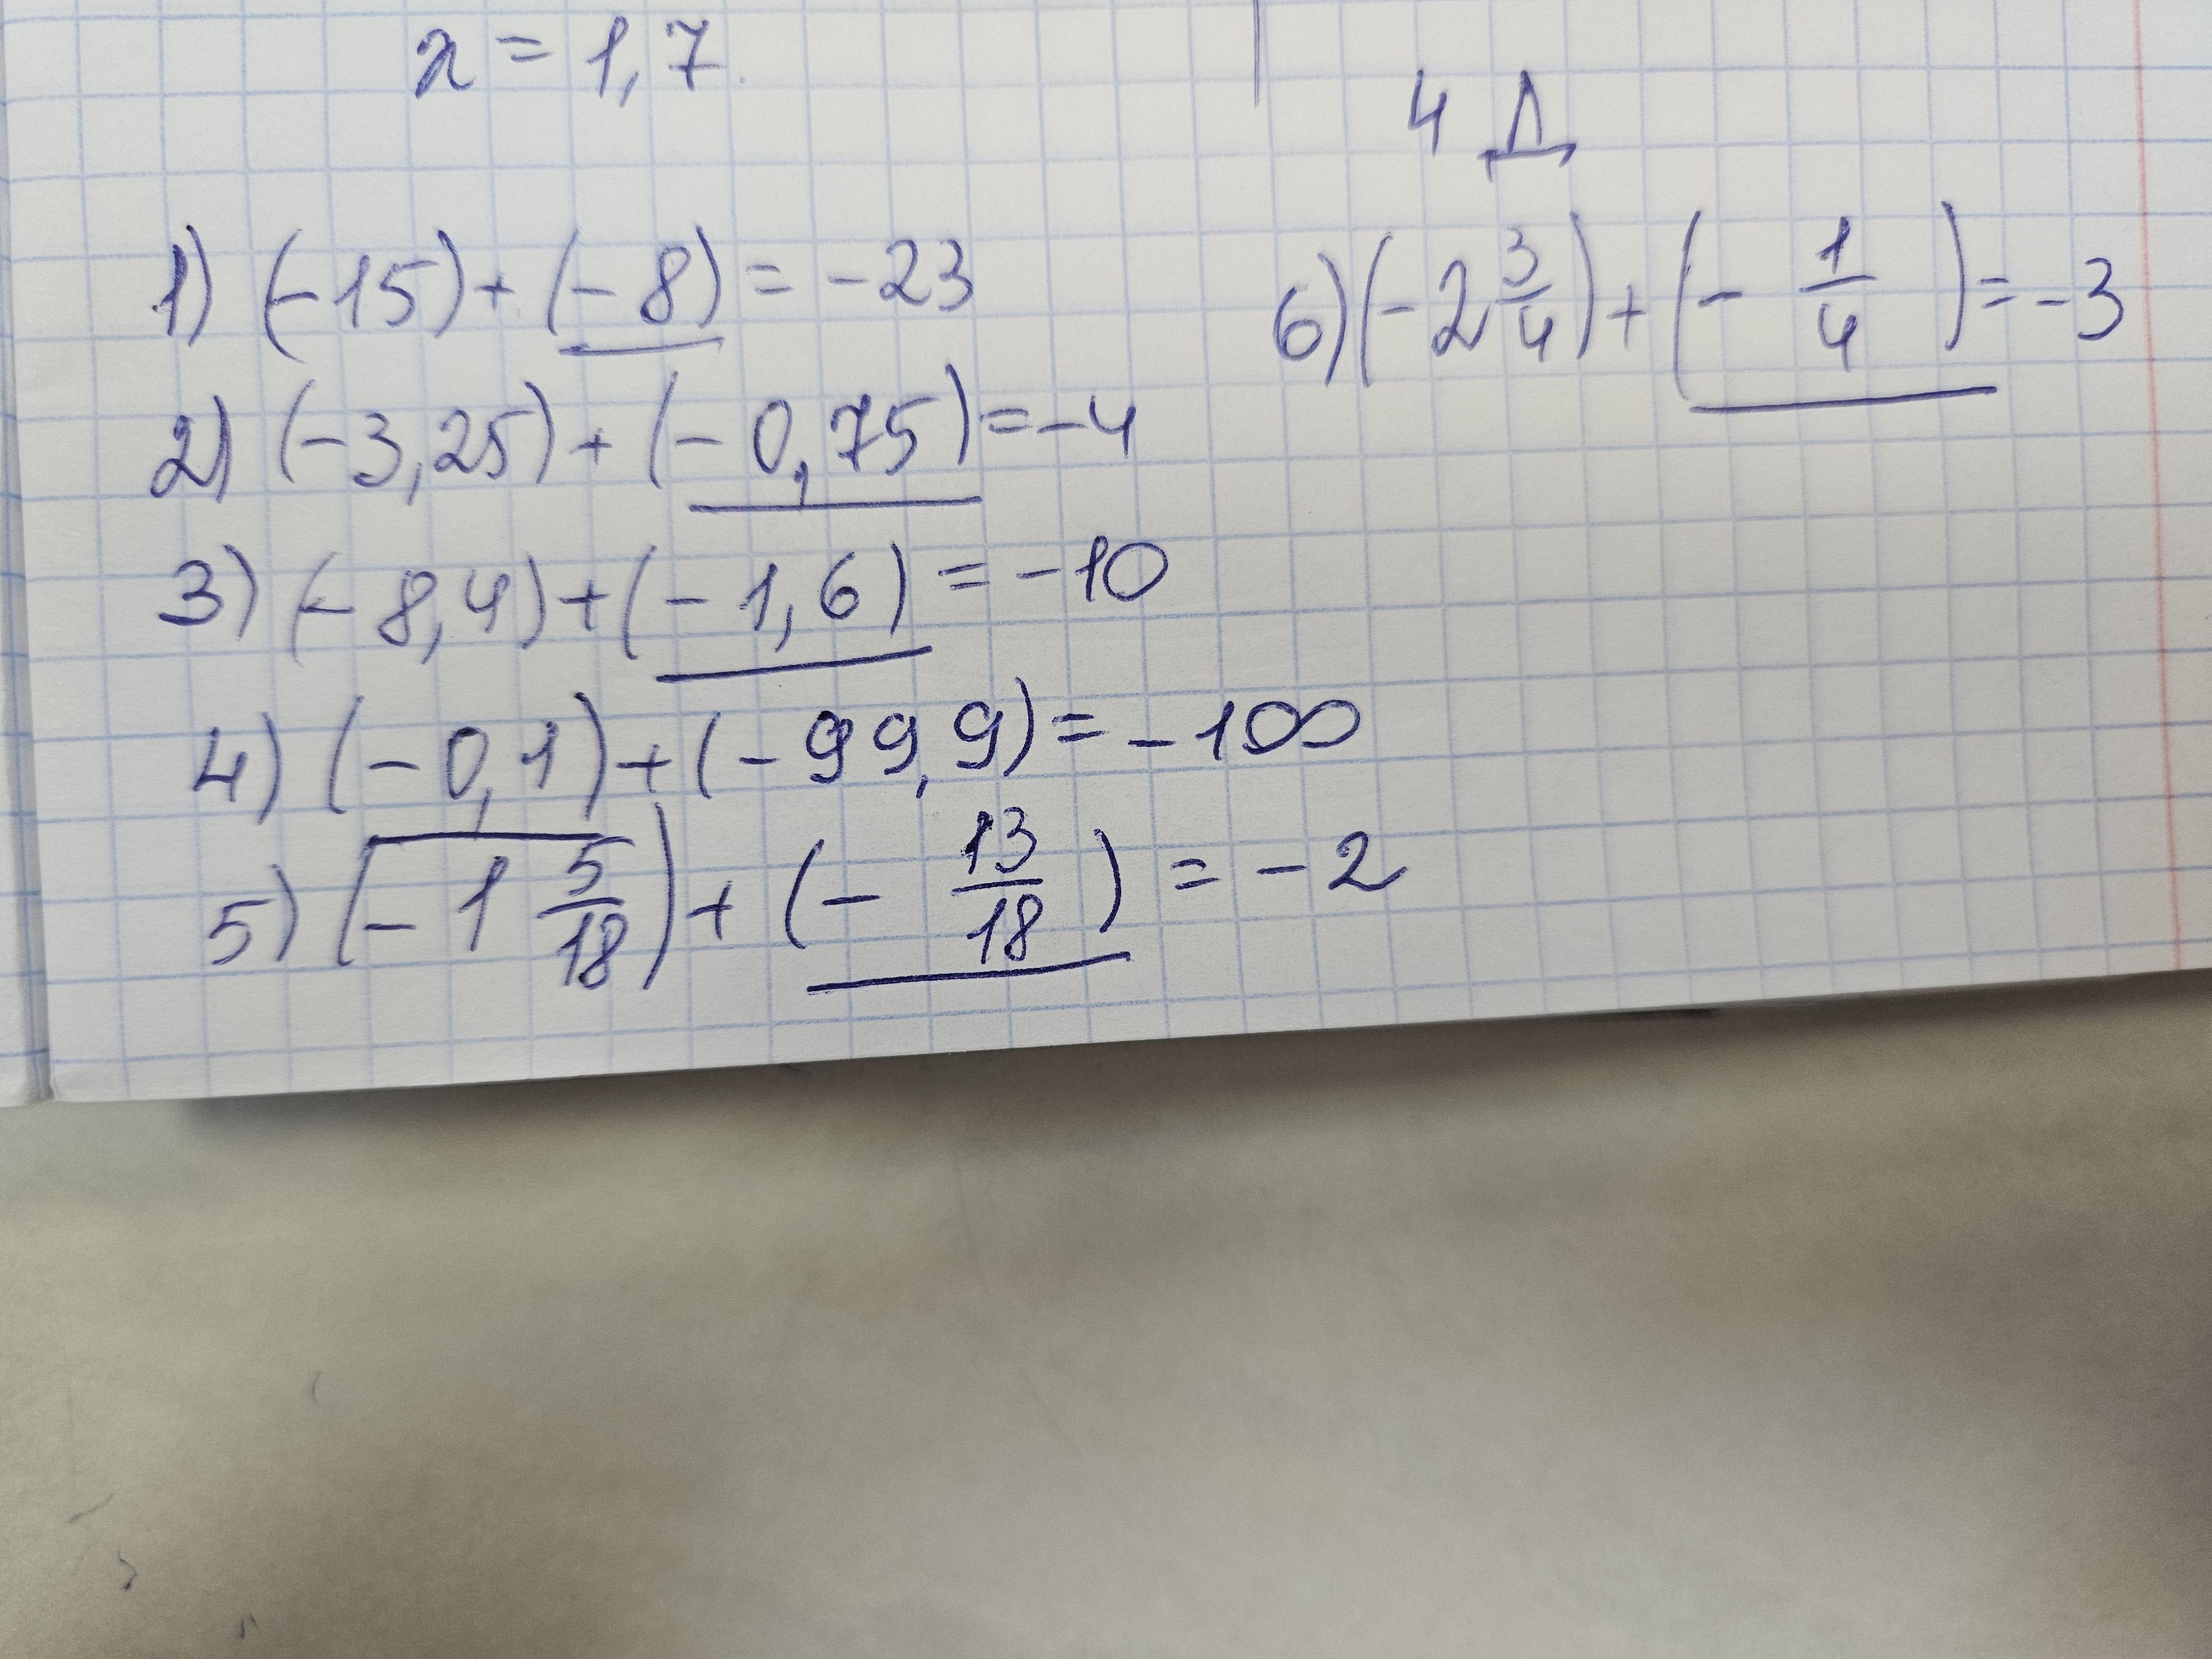 x = 1,7
4 Д
1) (-15) + (-8) = -23
2) (-3,25) + (-0,75) = -4
3) (-8,4) + (-1,6) = -10
4) (-0,1) + (-99,9) = -100
5) (-1 5/18) + (- 13/18) = -2
6) (-2 3/4) + (- 1/4) = -3